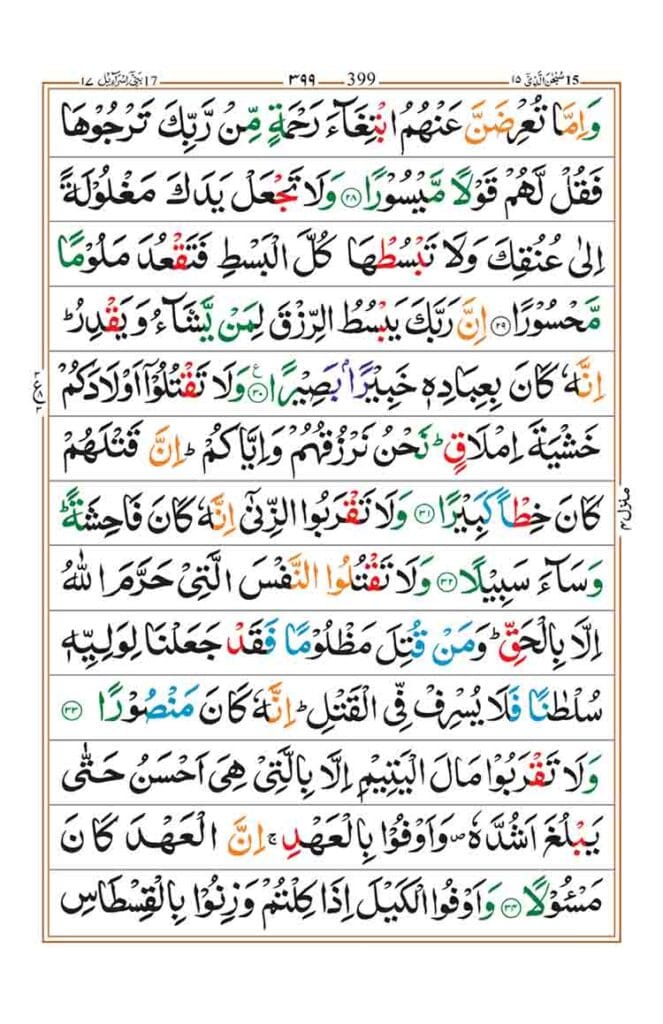 15 سُبْحٰنَ الَّذِیْٓ ١٥
399 ٣٩٩
17 بَنِیْٓ اِسْرَآءِیْل ١٧
وَاِمَّا تُعْرِضَنَّ عَنْهُمُ ابْتِغَآءَ رَحْمَةٍ مِّنْ رَّبِّكَ تَرْجُوْهَا
فَقُلْ لَّهُمْ قَوْلًا مَّیْسُوْرًا ۝٢٨ وَلَا تَجْعَلْ یَدَكَ مَغْلُوْلَةً
اِلٰی عُنُقِكَ وَلَا تَبْسُطْهَا كُلَّ الْبَسْطِ فَتَقْعُدَ مَلُوْمًا
مَّحْسُوْرًا ۝٢٩ اِنَّ رَبَّكَ یَبْسُطُ الرِّزْقَ لِمَنْ یَّشَآءُ وَیَقْدِرُ ؕ
اِنَّهٗ كَانَ بِعِبَادِهٖ خَبِیْرًۢا بَصِیْرًا ۝٣٠ ع وَلَا تَقْتُلُوْۤا اَوْلَادَكُمْ
خَشْیَةَ اِمْلَاقٍ ؕ نَحْنُ نَرْزُقُهُمْ وَاِیَّاكُمْ ؕ اِنَّ قَتْلَهُمْ
كَانَ خِطْاً كَبِیْرًا ۝٣١ وَلَا تَقْرَبُوا الزِّنٰۤی اِنَّهٗ كَانَ فَاحِشَةً ؕ
وَسَآءَ سَبِیْلًا ۝٣٢ وَلَا تَقْتُلُوا النَّفْسَ الَّتِیْ حَرَّمَ اللّٰهُ
اِلَّا بِالْحَقِّ ؕ وَمَنْ قُتِلَ مَظْلُوْمًا فَقَدْ جَعَلْنَا لِوَلِیِّهٖ
سُلْطٰنًا فَلَا یُسْرِفْ فِّی الْقَتْلِ ؕ اِنَّهٗ كَانَ مَنْصُوْرًا ۝٣٣
وَلَا تَقْرَبُوْا مَالَ الْیَتِیْمِ اِلَّا بِالَّتِیْ هِیَ اَحْسَنُ حَتّٰی
یَبْلُغَ اَشُدَّهٗ ۪ وَاَوْفُوْا بِالْعَهْدِ ۚ اِنَّ الْعَهْدَ كَانَ
مَسْـُٔوْلًا ۝٣٤ وَاَوْفُوا الْكَیْلَ اِذَا كِلْتُمْ وَزِنُوْا بِالْقِسْطَاسِ
منزل ٤